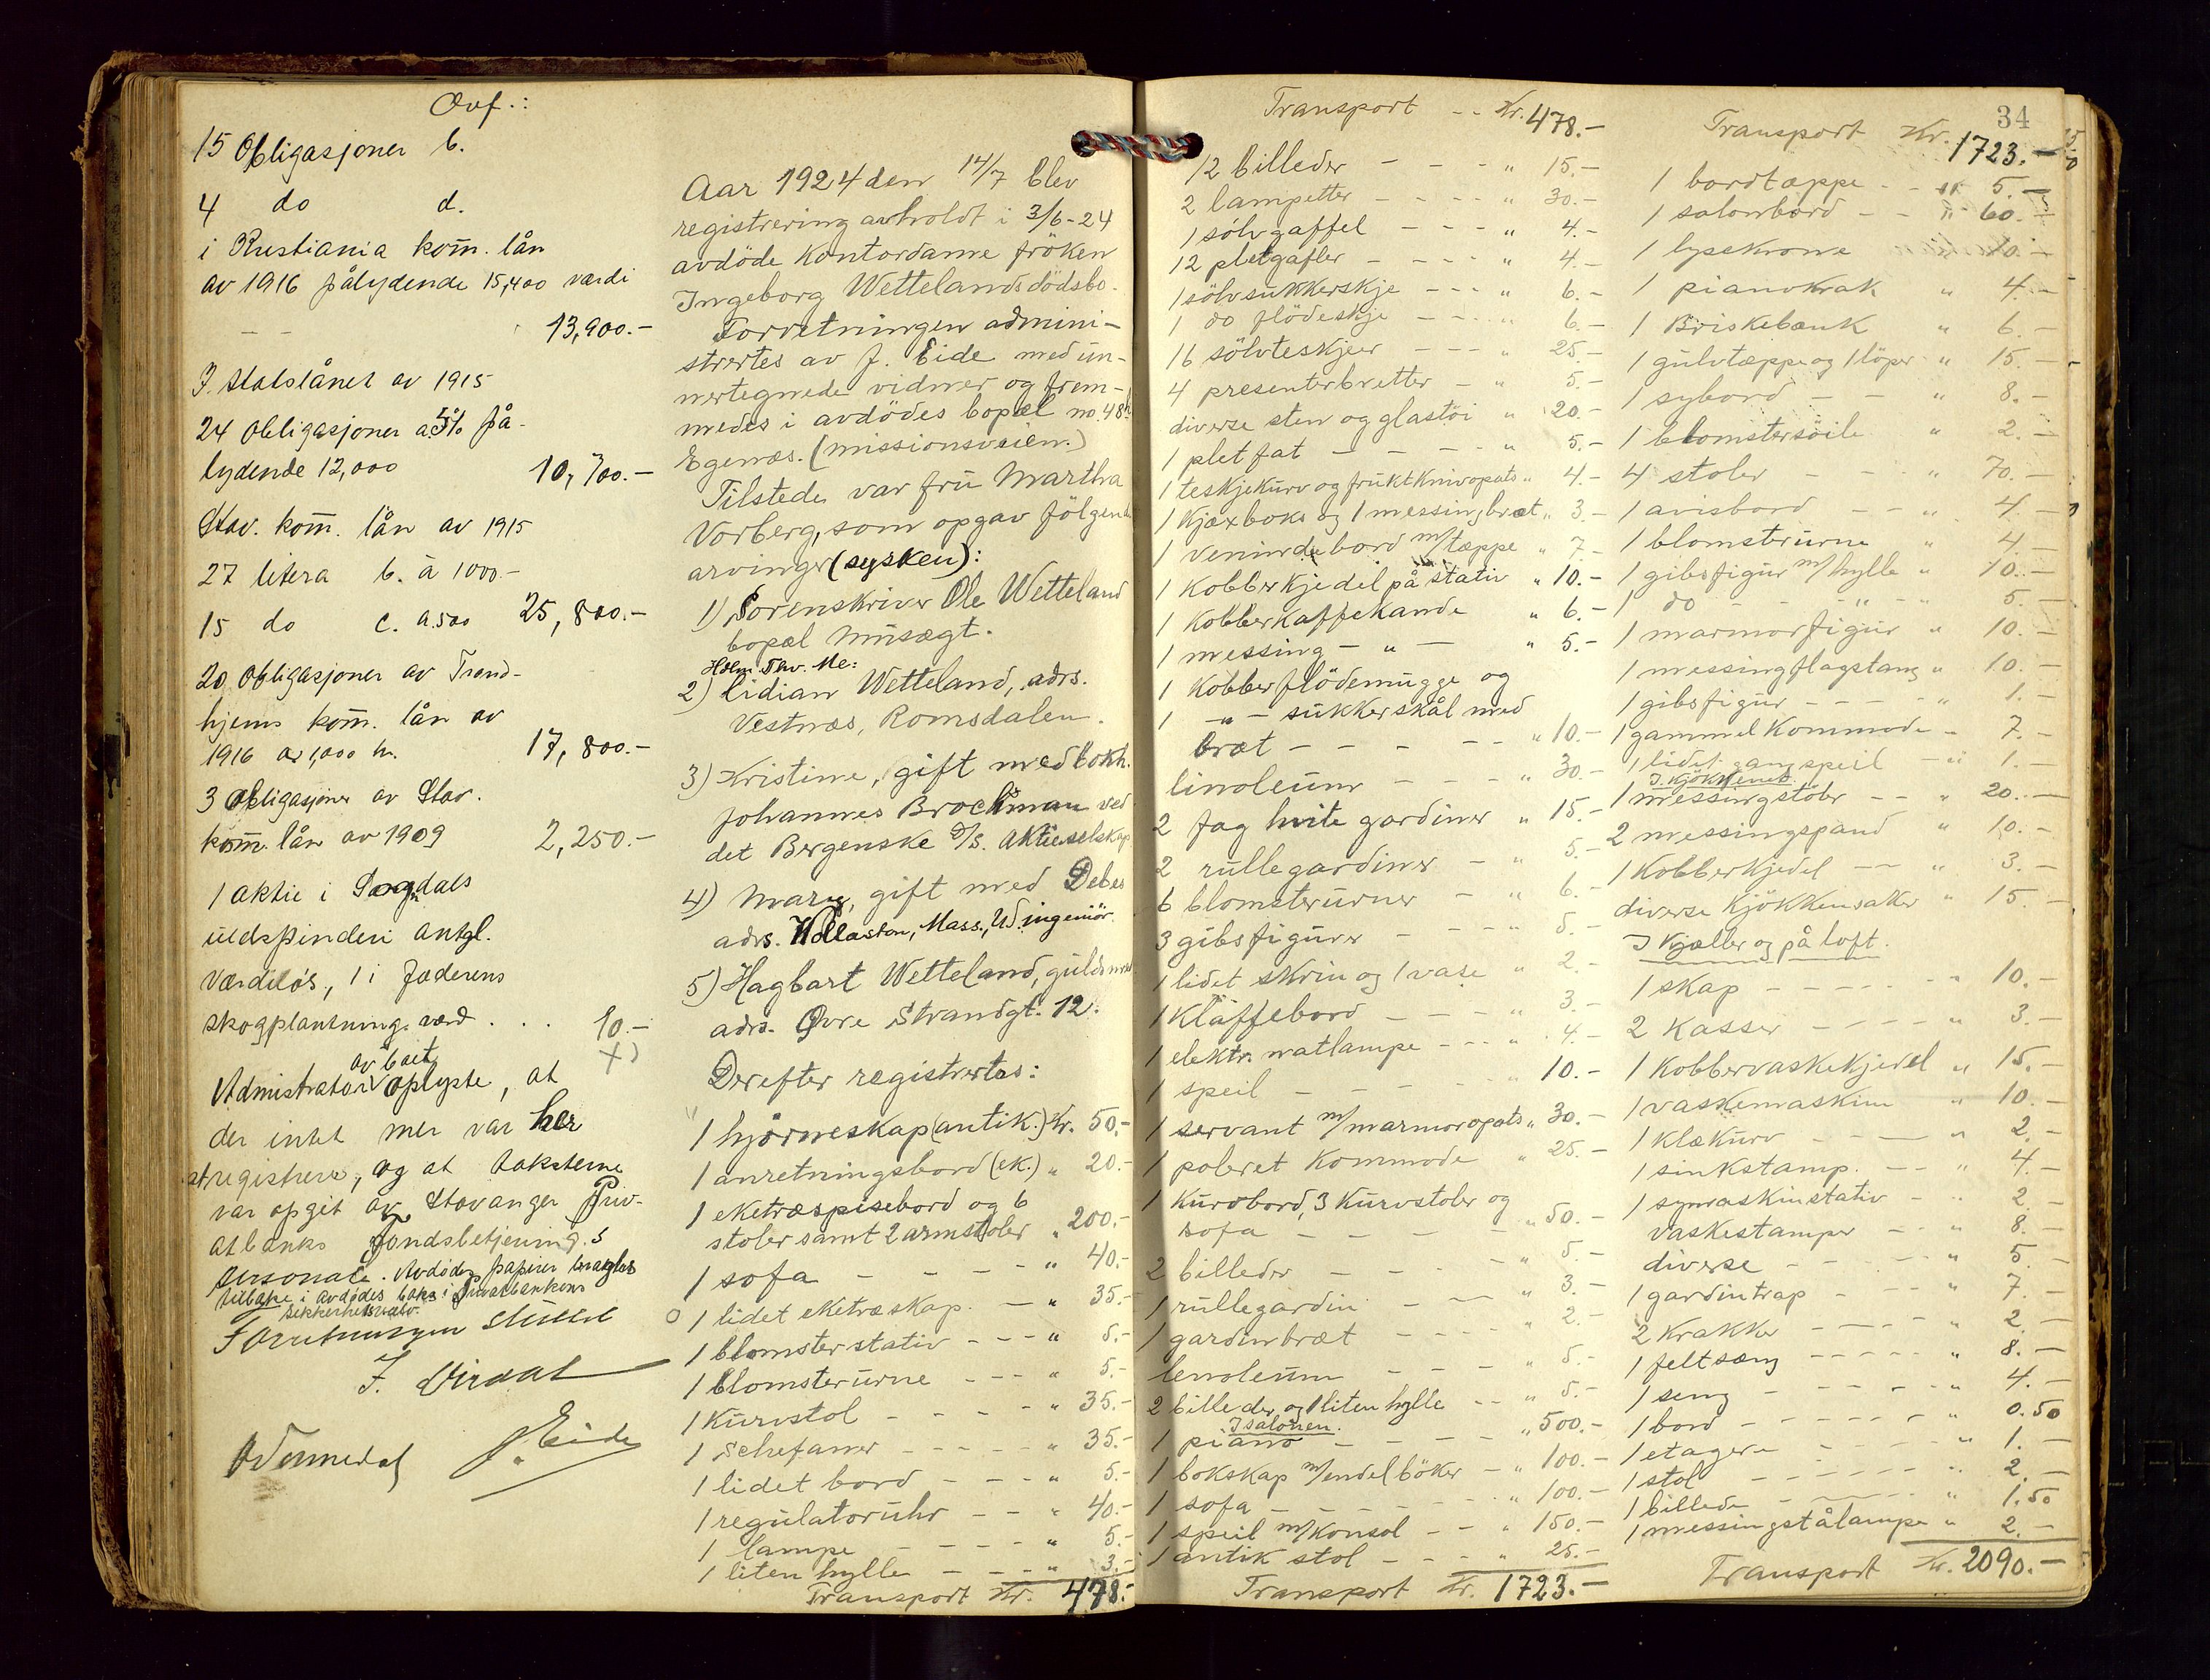 Ovf.:
15 Obligasjoner b.
4 do d.
i Kristiania kom. lån
av 1916 pålydende 15,400 værdi
— — 13,900.—
I Statslånet av 1915
24 Obligasjoner a 5% på-
lydende 12,000 10,700.—
Stav. kom. lån av 1915
27 litera b. à 1000.—
15 do c. a. 500 25,800.—
20 Obligasjoner av Trond-
hjems kom. lån av
1916 a 1,000 kr. 17,800.—
3 Obligasjoner av Stav.
kom. lån av 1909 2,250.—
1 aktie i Sogndals
uldspinderi antgl.
værdiløs, 1 i Jæderens
skogplantning værd . . . 10.—
x)
av boet
Admistrator oplyste, at
der intet mer var her
at registrere, og at taksterne
var opgit av Stavanger Priv-
atbanks fondsbetjening.s
personale. Avdødes papirer bragtes
tilbake i avdødes boks i Privatbankens
sikkerhetshvælv.
Forretningen sluttet
J. Eide
Aar 1924 den 14/7 blev
registrering avholdt i 3/6-24
avdöde Kontordame fröken
Ingeborg Wettelands dödsbo.
Forretningen admini-
strertes av J. Eide med un-
nertegnede vidner og frem-
medes i avdödes bopæl no. 48
Egenæs. (missionsveien.)
Tilstede var fru Martha
Vorberg, som opgav fölgende
arvinger (søsken):
1) Sorenskriver Ole Wetteland
bopæl Musægt.
2) Lidian Wetteland, adrs.
Vestnæs, Romsdalen.
3) Kristine, gift med bokh.
Johannes Brochman ved
det Bergenske D/S. Aktieselskap
4) Mary, gift med Debes
adrs. Wollaston, Mass., U.S. ingeniör.
5) Hagbart Wetteland, guldsmed
adrs. Øvre Strandgt. 12.
Derefter registrertes:
1 hjörneskap (antik.) Kr. 50.-
1 anretningsbord (ek.) „ 20.-
1 eketræspisebord og 6
stoler samt 2 armstoler „ 200.-
1 sofa - - - - „ 40.-
1 lidet eketræskap. — „ 35.-
1 blomsterstativ - - - „ 5.-
1 blomsterurne - - - „ 5.-
1 Kurvstol - - - - „ 35.-
1 schefaner - - - - „ 35.-
1 lidet bord - - - - „ 5.-
1 regulatoruhr - - - „ 40.-
1 lampe - - - - „ 5.-
1 liten hylle - - - „ 3.-
Transport Kr. 478.-
Transport - - Kr. 478.-
12 billeder - - - „ 15.-
2 lampetter - - - - „ 30.-
1 sölvgaffel - - - „ 4.-
12 pletgafler - - - - „ 4.-
1 sölvsukkerskje - - - „ 6.-
1 do flödeskje - - - „ 6.-
16 sölvteskjeer - - - „ 25.-
4 presenterbretter - „ 5.-
diverse sten og glastöi „ 20.-
1 pletfat - - - - „ 5.-
1 teskjekurv og fruktknivopsats „ 4.-
1 Kjæxboks og 1 messingbræt „ 3.-
1 venindebord m/tæppe „ 7.-
1 Kobberkjedel på stativ „ 10.-
1 Kobberkaffekande „ 6.-
1 messing - „ - „ 5.-
1 Kobberflödemugge og
1 - „ - sukkerskål med
bræt - - - - „ 10.-
linoleum - - - „ 30.-
2 fag hvite gardiner „ 15.-
2 rullegardiner - „ 5.-
6 blomsterurner - „ 6.-
3 gibsfigurer - - - „ 5.-
1 lidet skrin og 1 vase „ 2.-
1 Klaffebord - - - „ 3.-
1 elektr. natlampe - - - „ 4.-
1 speil - - - - „ 10.-
1 servant m/marmoropsats „ 30.-
1 poleret Kommode „ 25.-
1 Kurvbord, 3 Kurvstoler og
sofa - - - - „ 50.-
2 billeder - - - - „ 5.-
1 rullegardin - - - „ 3.-
1 gardinbræt - - - - „ 2.-
lenoleum - - - „ 5.-
2 billeder og 1 liten hylle - - „ 5.-
I salonen.
1 piano - - - - „ 500.-
1 bokskap m/endel böker - „ 100.-
1 sofa - - - - „ 100.-
1 speil m/konsol - - „ 150.-
1 antik stol - - - „ 25.-
Transport Kr. 1723.-
34
Transport Kr. 1723.-
1 bordtæppe - - „ 5.-
1 salonbord - - „ 60.-
1 lysekrone 10.-
1 pianokrak „ 4.-
1 Briskebænk „ 6.-
1 gulvtæppe og 1 löper „ 15.-
1 sybord - - „ 8.-
1 blomstersöile „ 2.-
4 stoler - - - „ 70.-
1 avisbord - - „ 4.-
1 blomsterurne „ 4.-
1 gibsfigur m/hylle „ 10.-
1 do - - „ - 5.-
1 marmorfigur „ 10.-
1 messingflagstang „ 10.-
1 gibsfigur - - - „ 1.-
1 gammel Kommode - 7.-
1 lidet gangspeil - „ 1.-
I kjökkenet.
1 messingstöber - - „ 20.-
2 messingspand „ 10.-
1 Kobberkjedel - - „ 3.-
diverse Kjökkensaker „ 15.-
I Kjæller og på loft.
1 skap - - - - „ 10.-
2 Kasser - - - - „ 3.-
1 Kobbervaskekjedel „ 15.-
1 vaskemaskine „ 10.-
1 Klækurv - - - - „ 2.-
1 sinkstamp. - - „ 4.-
1 symaskinstativ - „ 2.-
vaskestamper - - „ 8.-
diverse - - - - „ 5.-
1 gardintrap - - - „ 7.-
2 Krakker - - - - „ 2.-
1 feltseng - - - - „ 8.-
1 seng - - - - „ 4.-
1 bord - - - - „ 0.50
1 etagere - - - - „ 1.-
1 stol - - - - „ 2.-
1 billede - - - - „ 1.50
1 messingstålampe „ 2.-
Transport Kr. 2090.-